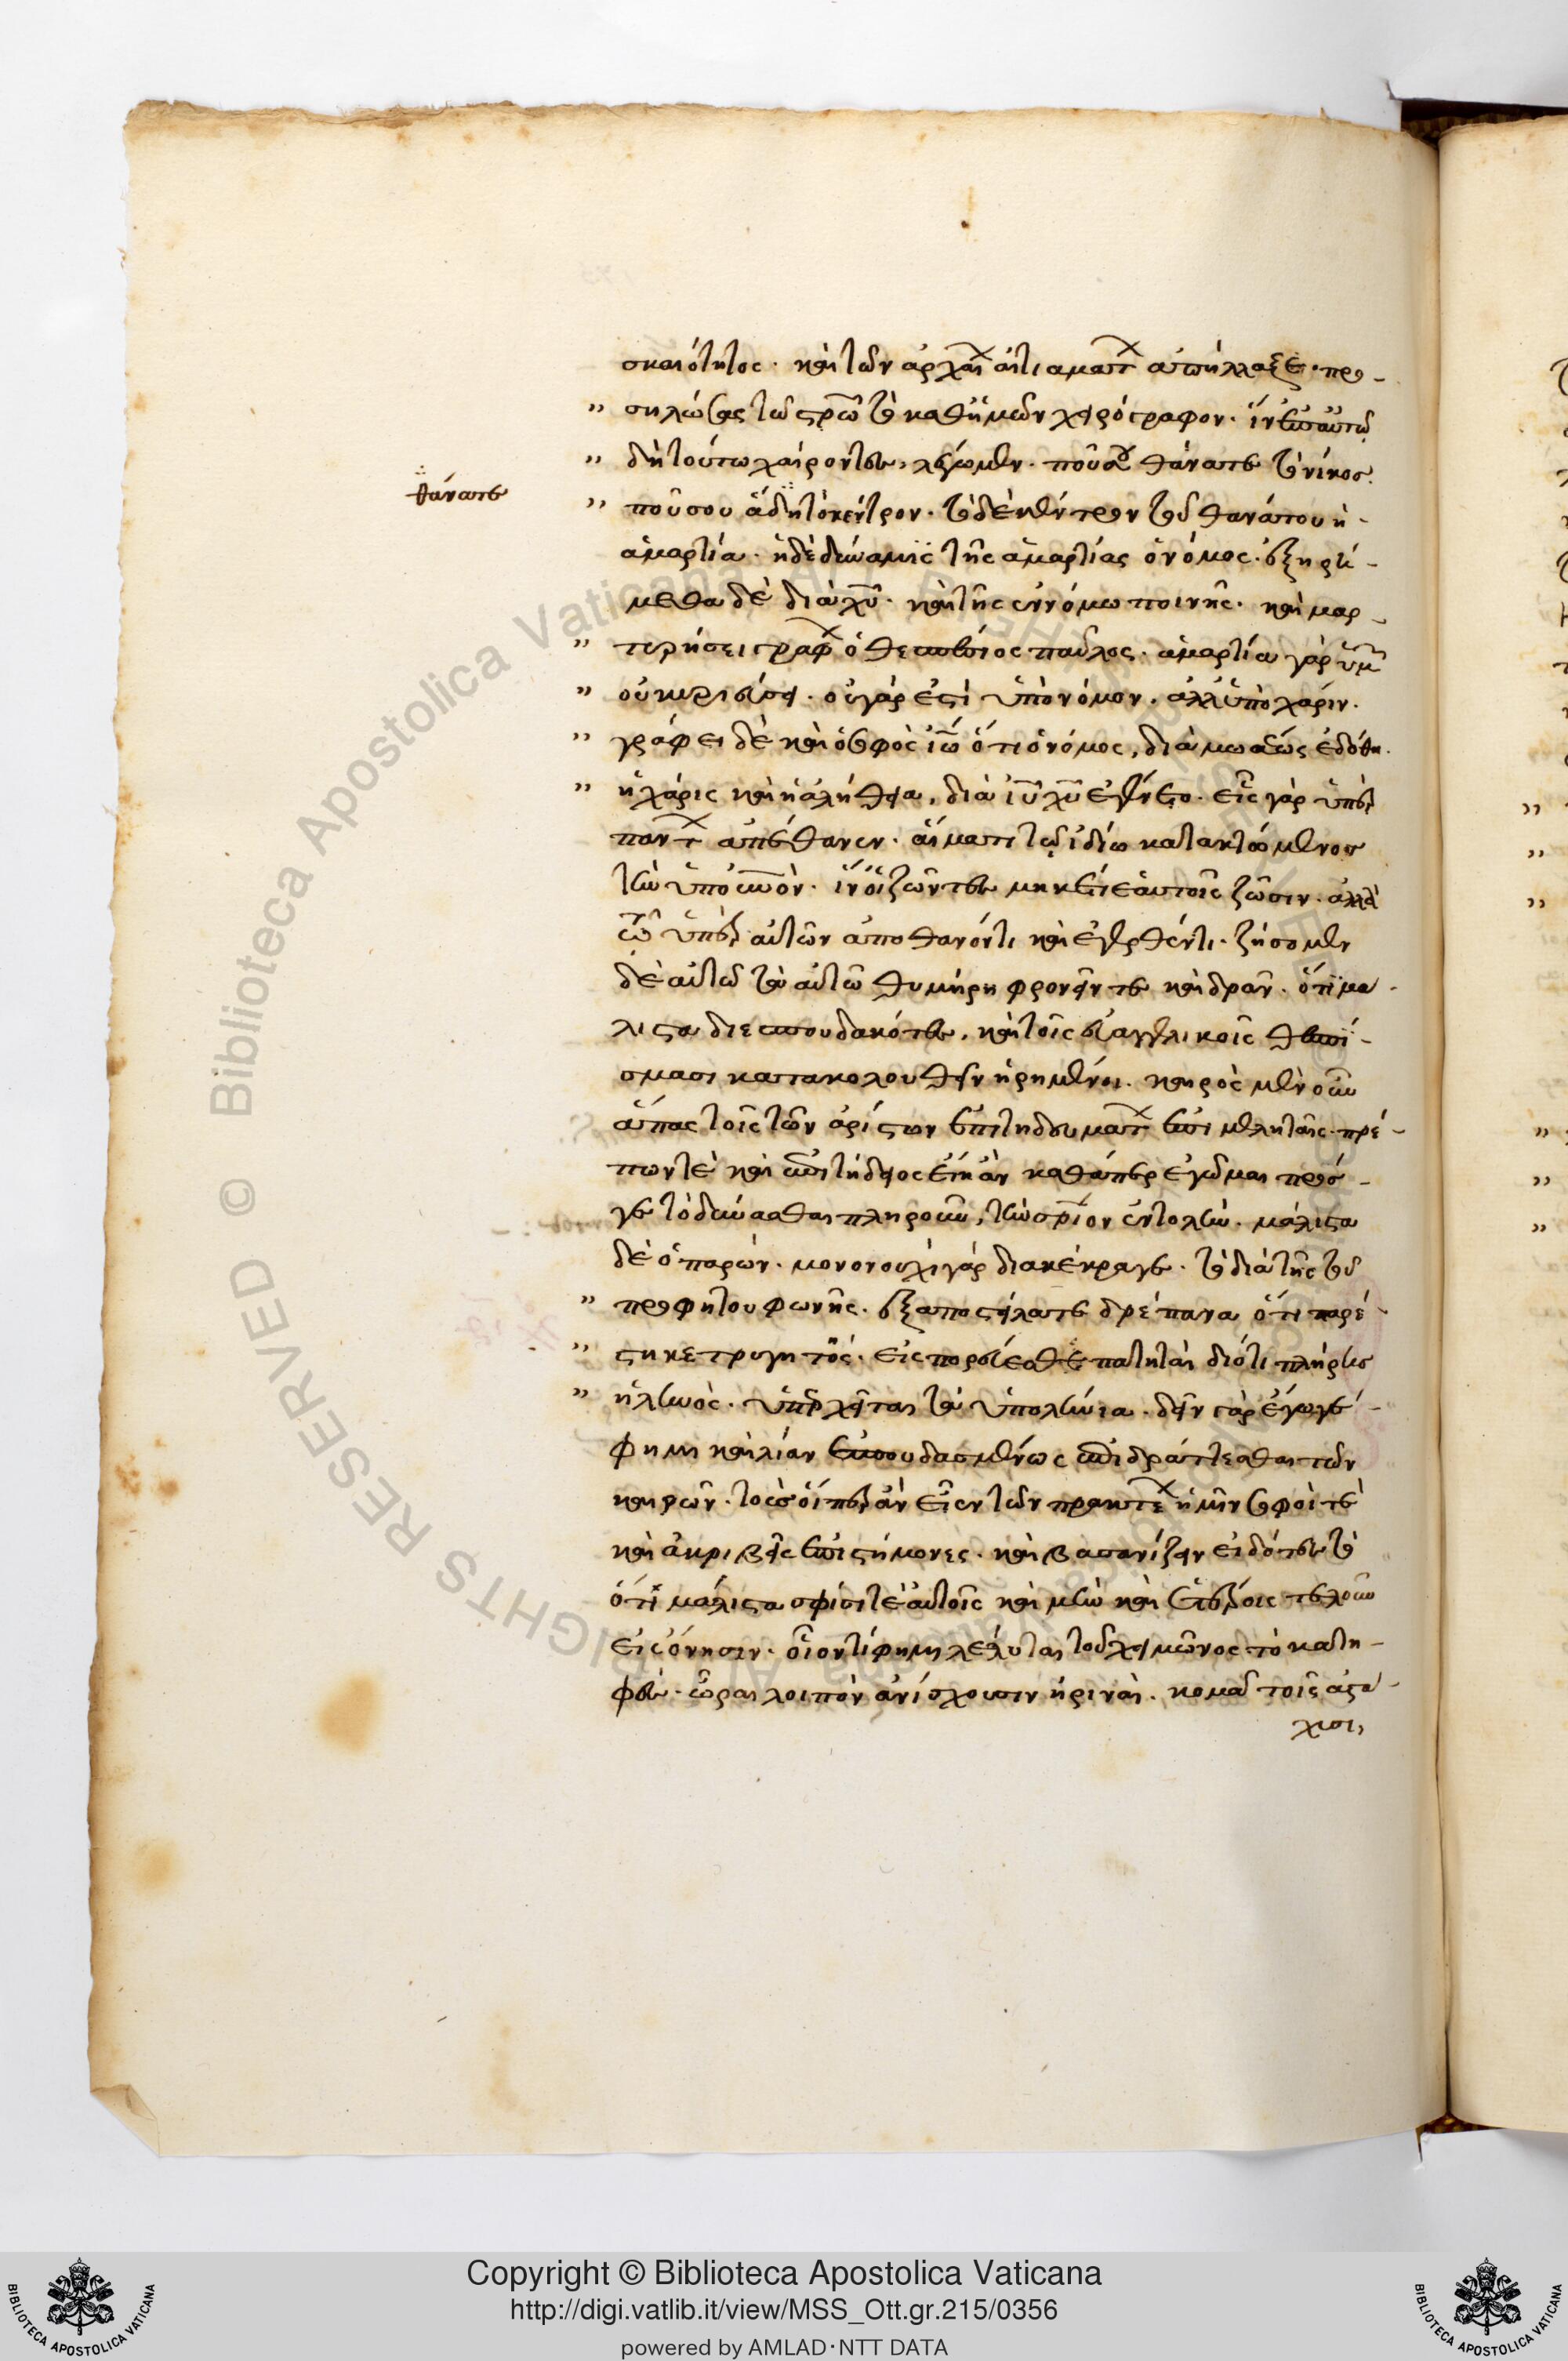 σκαιότητος. καὶ τῶν ἀρχαί αἰτιαμάτ ἀπήλλαξε. προ-
" σηλώσας τῶ σρῶ τὸ καθ' ἡμῶν χειρόγραφον. ἵν' ἐπ' αὐτῶ
" δὴ τούτω χαίροντες, λέγωμεν. ποῦ σου θάνατε τὸ νίκος.
θάνατε
" ποῦ σου ἅδη τὸ κέντρον. τὸ δὲ κέντρον τοῦ θανάτου ἡ-
ἁμαρτία. ἡ δὲ δύναμις τῆς ἁμαρτίας ὁ νόμος. ἐξηρή-
μεθα δὲ διὰ χῦ. καὶ τῆς ἐννόμω ποινῆς. καὶ μαρ-
" τυρήσει γράφ ὁ θεσπέσιος παῦλος. ἁμαρτία γὰρ ὑμ
" οὐ κυριεύσει. οὐ γάρ ἐστὶ ὑπὸ νόμον. ἀλλ' ὑπὸ χάριν.
" γράφει δὲ καὶ ὁ σοφὸς ἰω ὅτι ὁ νόμος, διὰ μωσέως ἐδόθη.
" ἡ χάρις καὶ ἡ ἀλήθεια, διὰ ιυ χυ ἐγένετο. εἷς γὰρ ὑπὲρ
παντ ἀπέθανεν. αἵματι τῶ ἰδίω κατακτώμενος
τὴν ὑπ' οὐνὸν. ἵν' οἱ ζῶντες μηκέτι ἑαυτοῖς ζῶσιν. ἀλλὰ
τῶ ὑπὲρ αὐτῶν ἀποθανόντι καὶ ἐγερθέντι. ζήσομεν
δὲ αὐτῶ τὰ αὐτῶ θυμήρη φρονεῖν τε καὶ δρᾶν. ὅτι μά-
λιστα διεσπουδακότες, καὶ τοῖς εὐαγγελικοῖς θεσπί-
σμασι κατακολουθεῖν ἡρημένοι. καιρὸς μὲν οὖν
ἅπας τοῖς τῶν ἀρίστων ἐπιτηδευμάτ ἐπιμεληταῖς. πρέ-
πων τὲ καὶ ἐπιτήδειος εἴη ἂν καθάπερ ἐγῶμαι πρός-
γε τὸ δύνασθαι πληροῦν, τὴν σριον ἐντολὴν. μάλιστα
δὲ ὁ παρών. μονονουχὶ γὰρ διακέκραγε. τὸ διὰ τῆς τοῦ
" προφήτου φωνῆς. ἐξαποστείλατε δρέπανα ὅτι παρέ-
" στηκε τρυγητός. εἰσπορεύεσθε πατῆται διότι πλήρης
" ἡ ληνὸς. ὑπερχεῖται τὰ ὑπολήνια. δεῖν γὰρ ἔγωγέ-
φημι καὶ λίαν ἐσπουδασμένως ἐπιδράττεσθαι τῶν
καιρῶν. τοὺς οἵπερ ἂν εἶεν τῶν πρακτέ ἡμῖν σοφοί τε
καὶ ἀκριβεῖς ἐπιστήμονες. καὶ βασανίζειν εἰδότες τὸ
ὅτι μάλιστα σφίσι τὲ αὐτοῖς καὶ μὴν καὶ ἑτέροις τελοῦν
εἰς ὄνησιν. οἷον τί φημι λέλυται τοῦ χειμῶνος. τὸ κατη-
φές. ὧραι λοιπὸν ἀνίσχουσιν ἠριναί. κομᾶ τοῖς ἀστά-
χυσι,
Copyright © Biblioteca Apostolica Vaticana
http://digi.vatlib.it/view/MSS_Ott.gr.215/0356
powered by AMLAD·NTT DATA